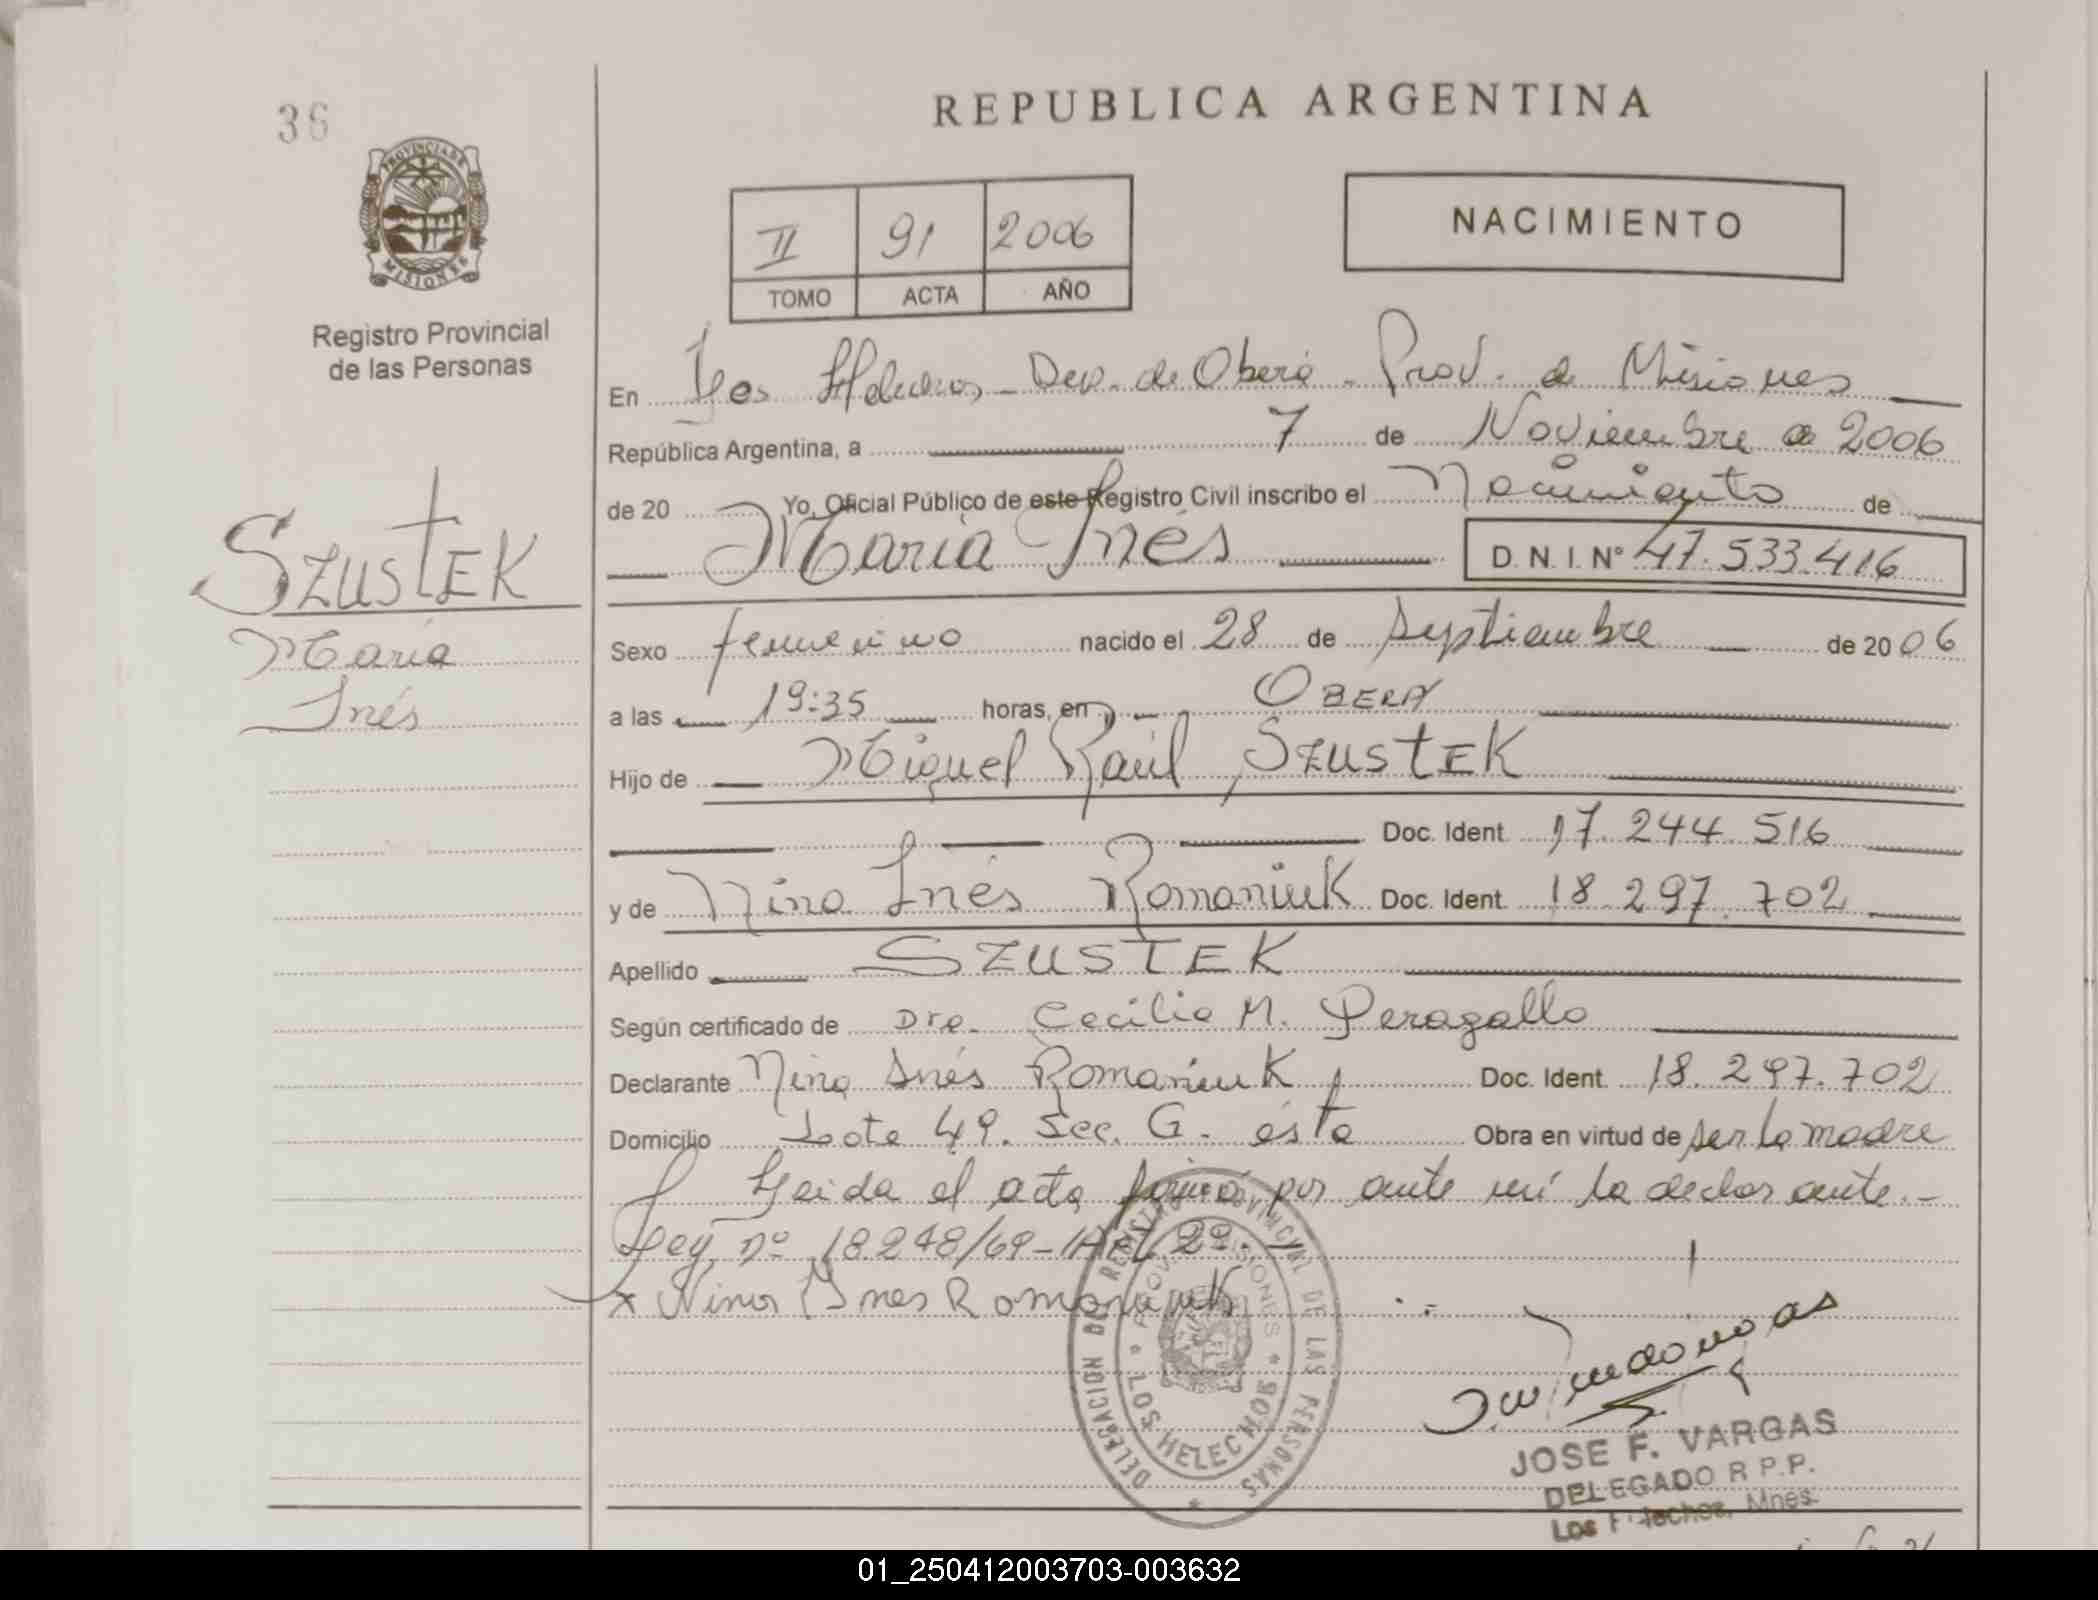 36
REPUBLICA ARGENTINA
PROVINCIA DE
MISIONES
Registro Provincial
de las Personas
II 91 2006
TOMO ACTA AÑO
NACIMIENTO
En Los Helechos - Dep. de Oberá - Prov. de Misiones
República Argentina, a 7 de Noviembre de 2006
de 20 Yo, Oficial Público de este Registro Civil inscribo el Nacimiento de
María Inés D.N.I. Nº 47.533.416
SZUSTEK
María
Inés
Sexo femenino nacido el 28 de septiembre de 2006
a las 19:35 horas, en OBERA
Hijo de Miguel Raúl SZUSTEK
Doc. Ident. 17.244.516
y de Nina Inés Romaniuk Doc. Ident. 18.297.702
Apellido SZUSTEK
Según certificado de Dra. Cecilia M. Peragallo
Declarante Nina Inés Romaniuk Doc. Ident. 18.297.702
Domicilio Lote 49. Sec. G. ésta Obra en virtud de ser la madre
Leida el acta firmó por ante mí la declarante.-
Ley nº 18248/69-Art. 2º.-
x Nina Ines Romaniuk
DELEGACION DEL REGISTRO PROVINCIAL DE LAS PERSONAS
PROV. MISIONES
LOS HELECHOS
JOSE F. VARGAS
DELEGADO R.P.P.
Los Helechos, Mnes.
01_250412003703-003632